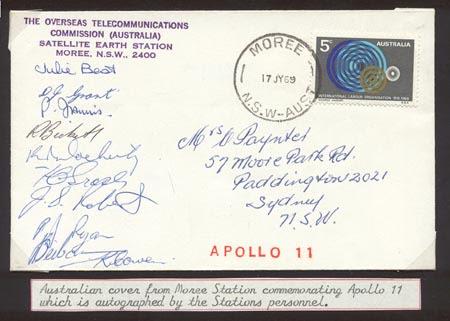 THE OVERSEAS TELECOMMUNICATIONS
COMMISSION (AUSTRALIA)
SATELLITE EARTH STATION
MOREE, N.S.W., 2400
Julie Beat
Grant
P. Jarvis
R Birkett
J. S. Robert
Ryan
R Cowen
MOREE
17 JY69
N.S.W-AUST
5c AUSTRALIA
INTERNATIONAL LABOUR ORGANISATION 1919-1969
Mrs V Paynter
57 Moore Park Rd.
Paddington 2021
Sydney
N.S.W.
APOLLO 11
Australian cover from Moree Station commemorating Apollo 11
which is autographed by the Stations personnel.